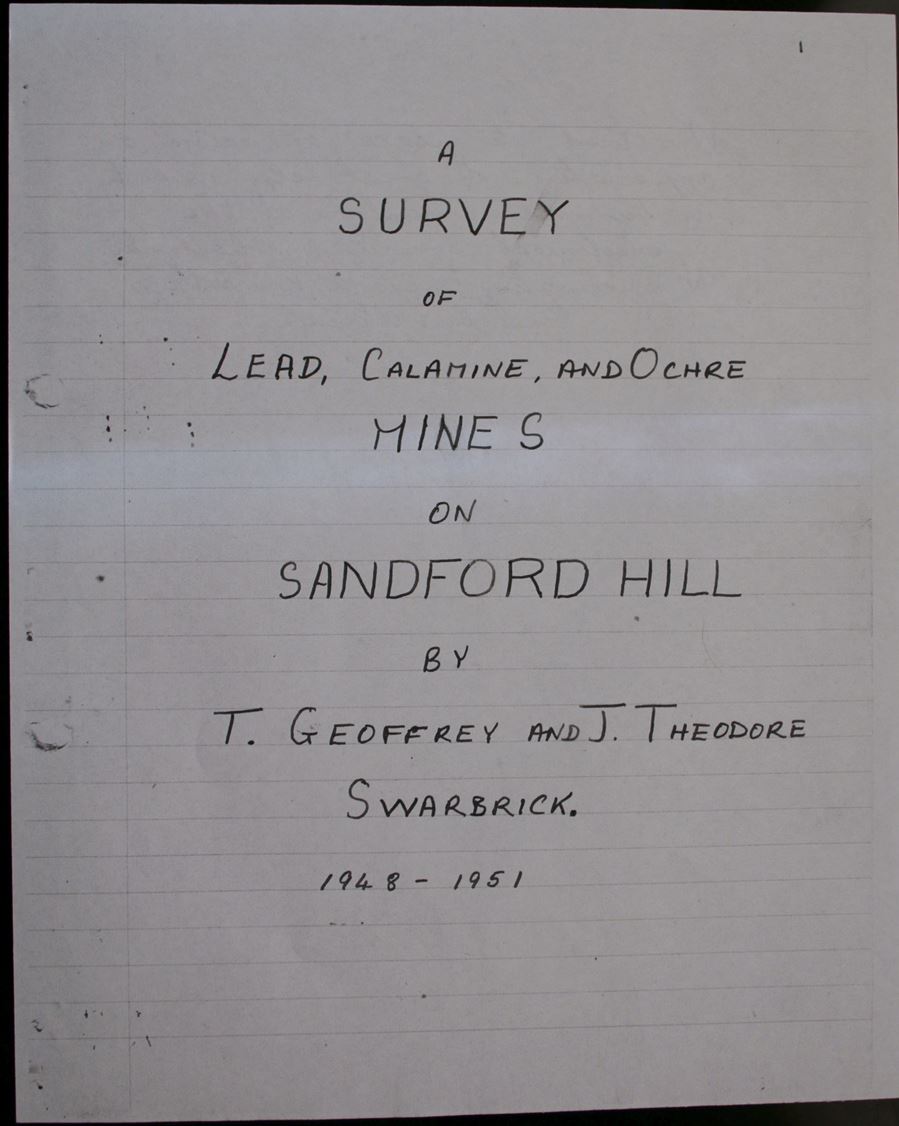 1
A
SURVEY
OF
LEAD, CALAMINE, AND OCHRE
MINES
ON
SANDFORD HILL
BY
T. GEOFFREY AND J. THEODORE
SWARBRICK.
1948 - 1951